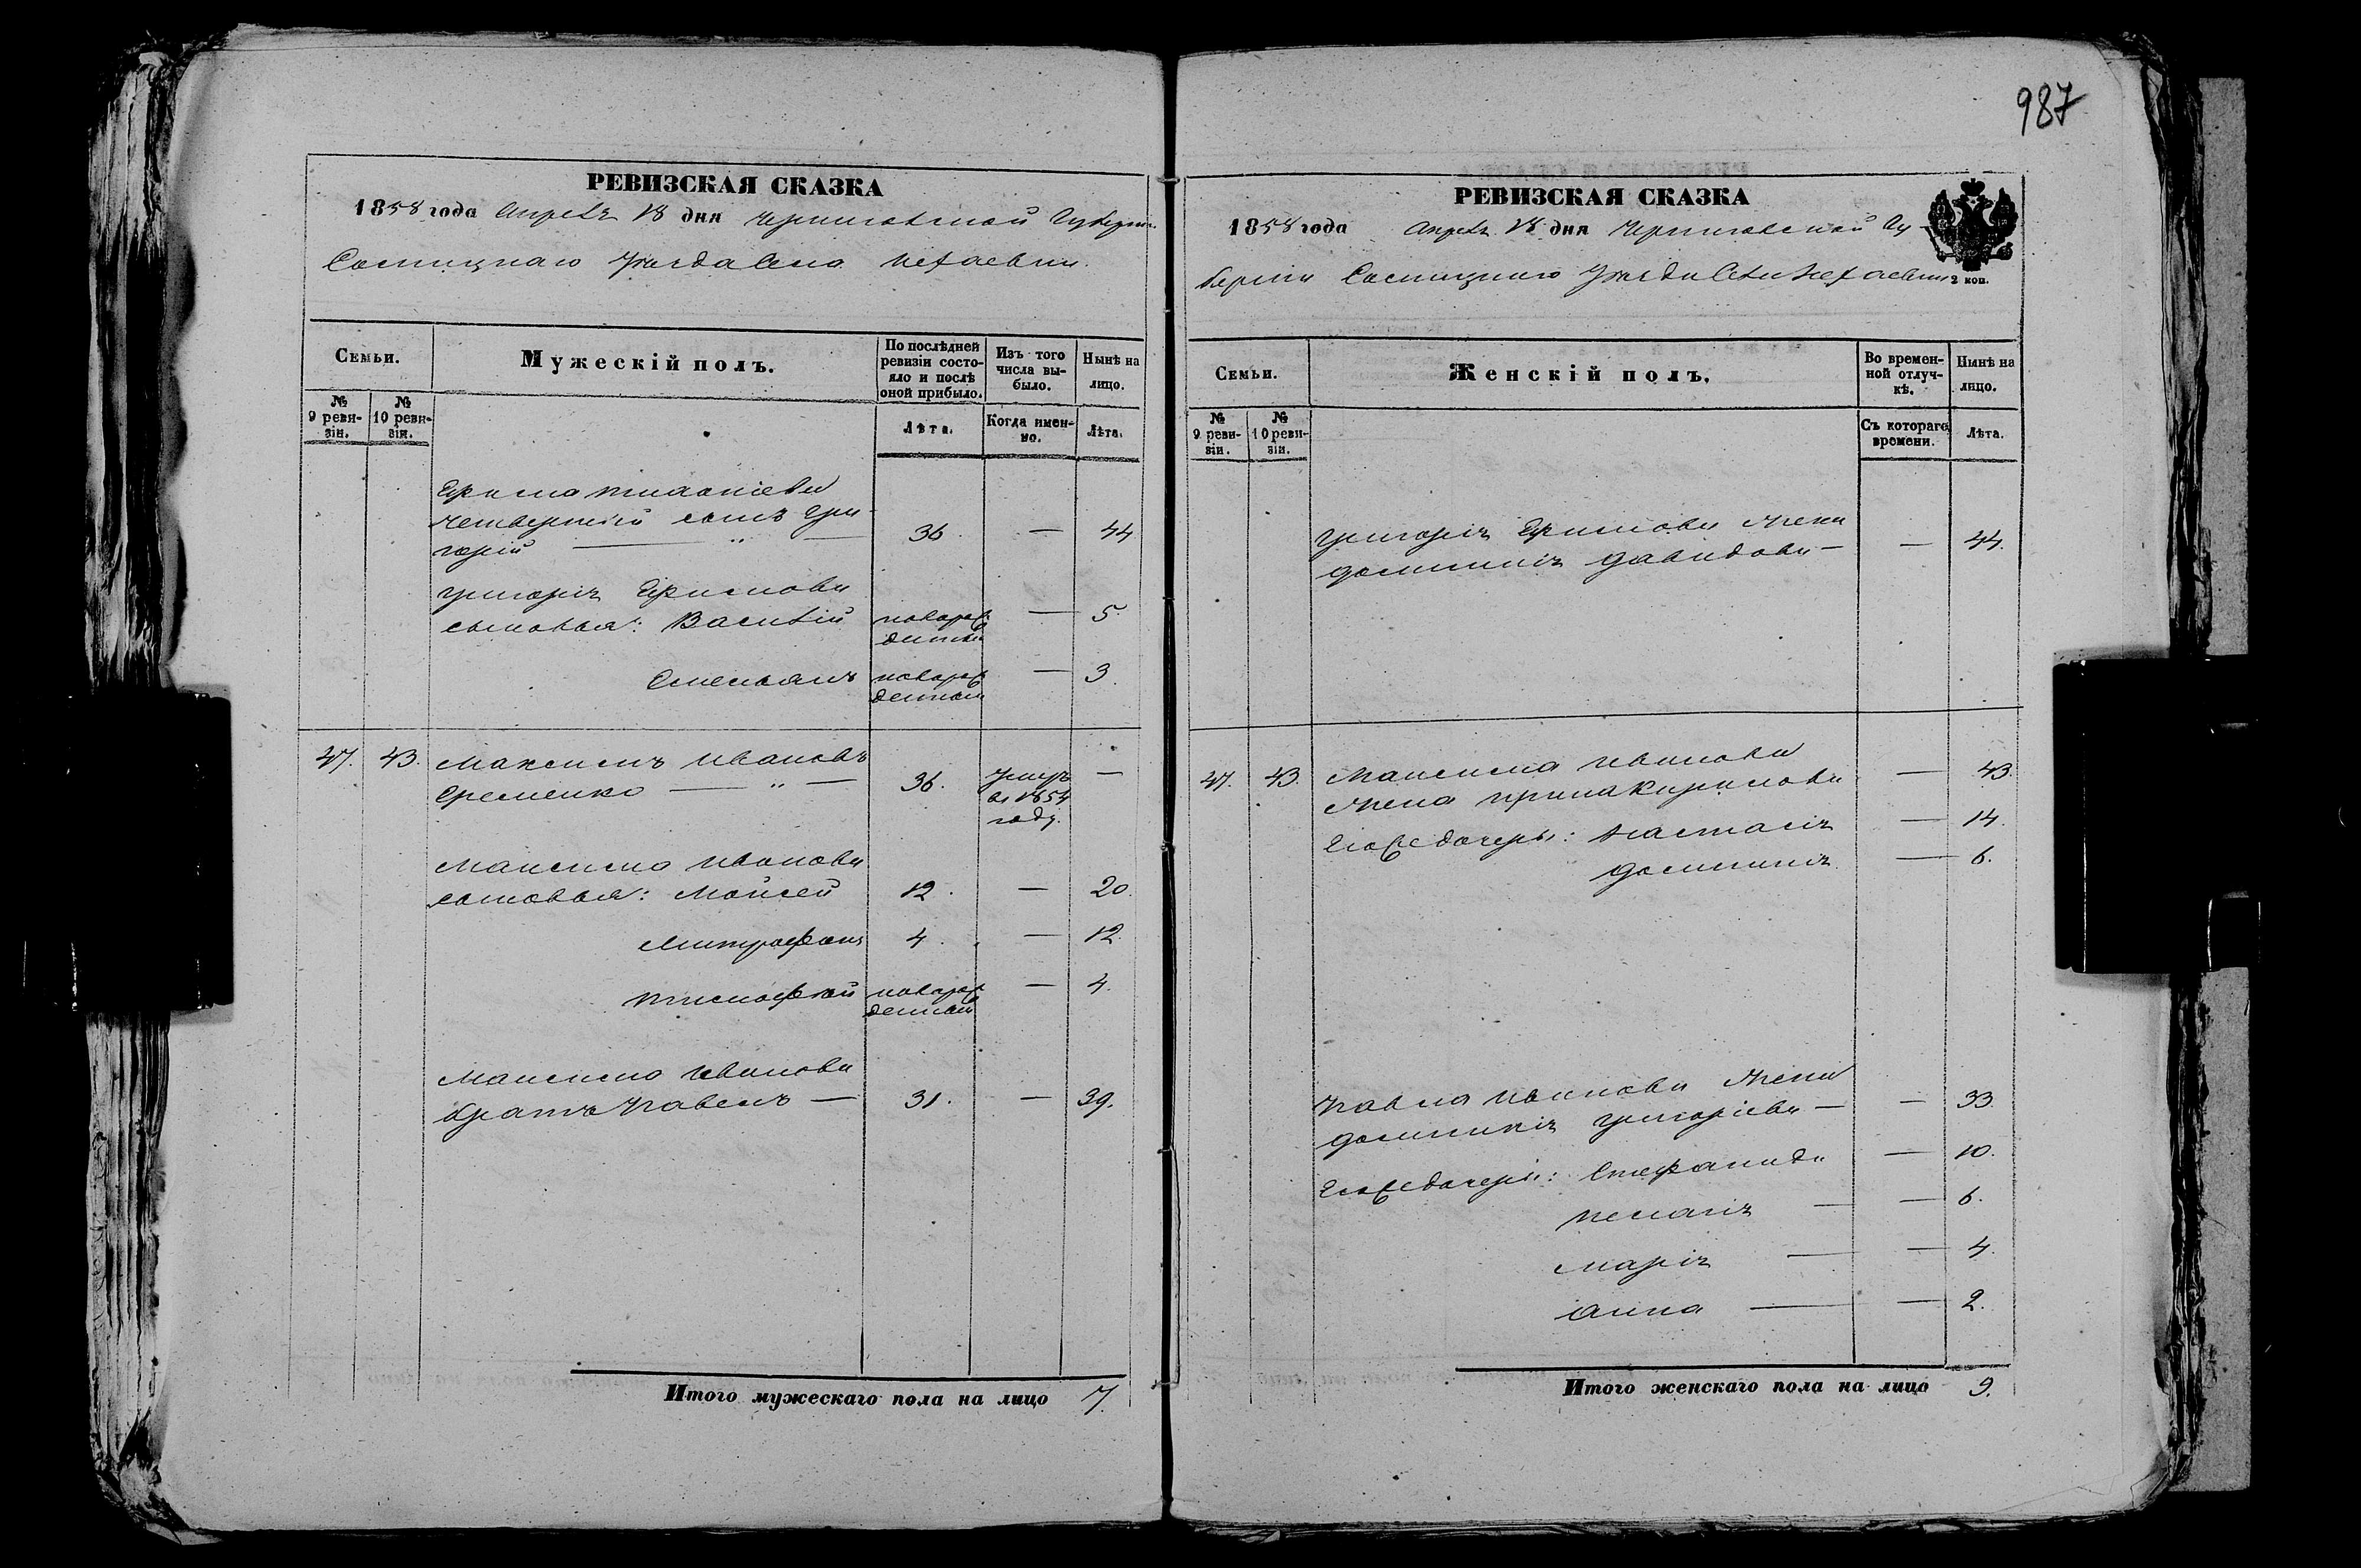 987
РЕВИЗСКАЯ СКАЗКА
1858 года Апреля 18 дня Черниговской Губерн.
Сосницкаго Уезда Села Нехаевки.
Семьи.
Мужескій полъ.
По послѣдней ревизіи состояло и послѣ оной прибыло.
Изъ того числа выбыло.
Нынѣ на лицо.
№ 9 ревизіи.
№ 10 ревизіи.
Лѣта.
Когда именно.
Лѣта.
четвертый сынъ Гри-
горій — " — 36. — 44
Григорія Ефимова
сыновья: Василій новорож
денный — 5.
Емельянъ новорож
денный — 3.
47. 43. Максимъ Ивановъ
Еременко — " — 36. умеръ
въ 1854
году. —
Максима Иванова
сыновья: Мойсей 12. — 20.
Митрофанъ 4. — 12.
Тимофей новорож
денный — 4.
Максима Иванова
братъ Павелъ — 31. — 39.
Итого мужескаго пола на лицо 7.
РЕВИЗСКАЯ СКАЗКА
1858 года Апреля 18 дня Черниговской Гу-
берніи Сосницкаго Уезда Села Нехаевки
2 коп.
Семьи.
Женскій полъ.
Во временной отлучкѣ.
Нынѣ на лицо.
№ 9 ревизіи.
№ 10 ревизіи.
Съ котораго времени.
Лѣта.
Григорія Ефимова жена
Домникія Давидова — — 44.
47. 43. Максима Иванова
жена Ирина Киримова — 43.
Его же дочери: Настасія — 14.
Домникія — 6.
Павла Иванова жена
Домникія Григоріева — — 33.
Его же дочери: Стефанида — 10.
Пелагія — — 6.
Марія — — 4.
Анна — — 2.
Итого женскаго пола на лицо 9.